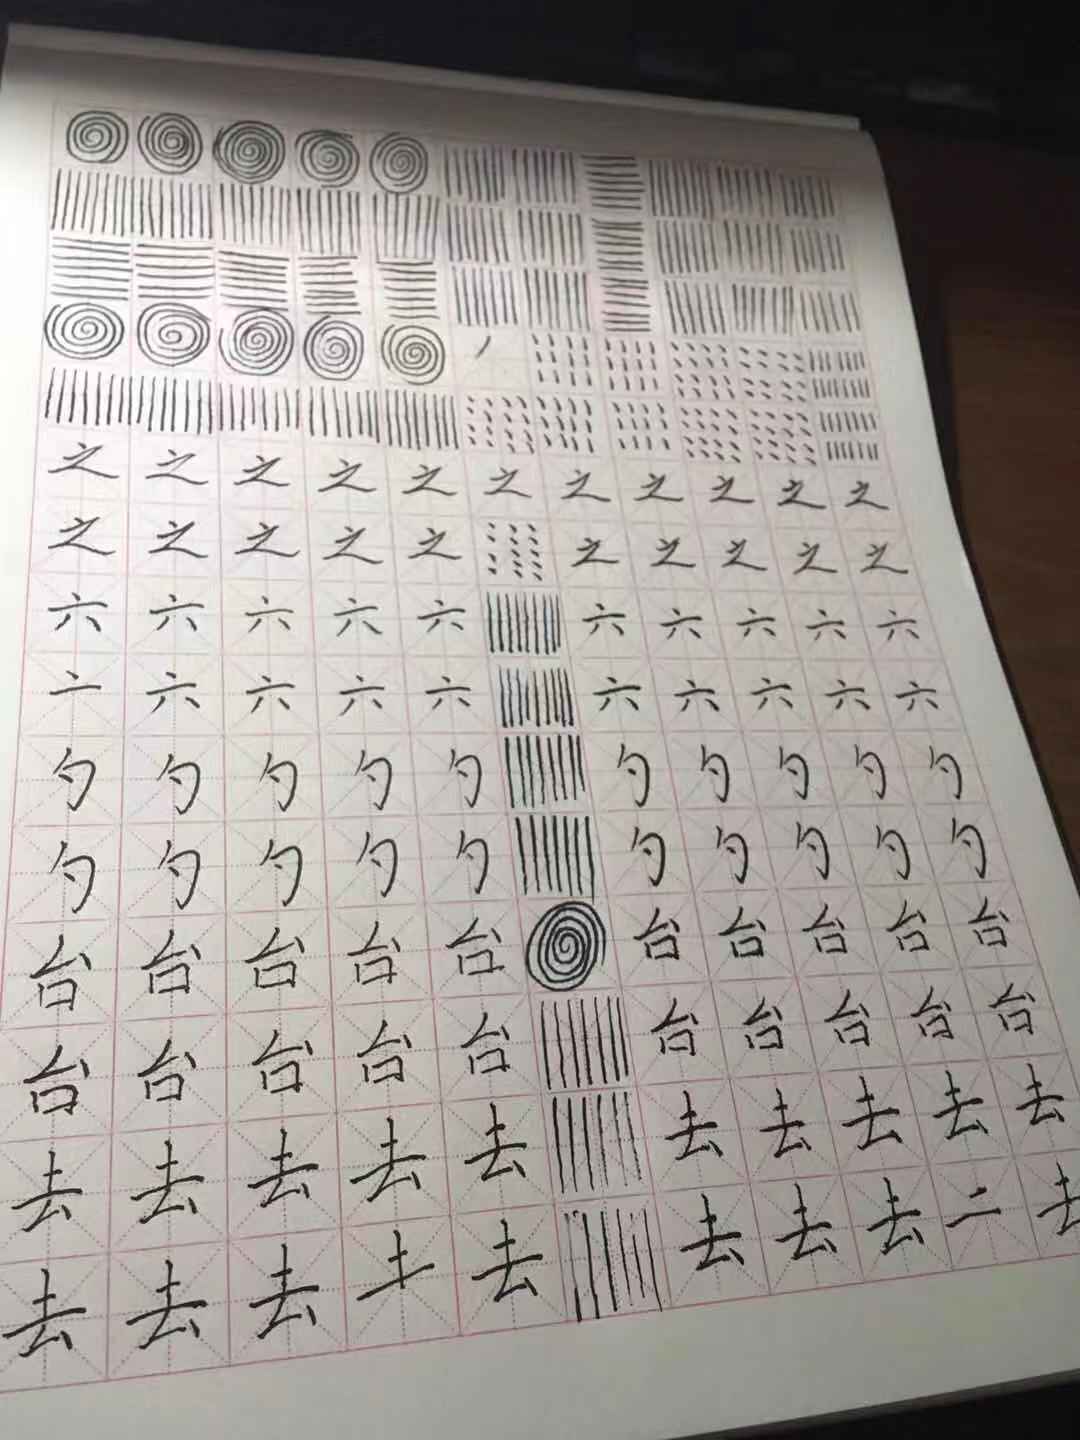 之之之之之之之之之之之
之之之之之之之之之之
六六六六六六六六六六
亠六六六六六六六六六
勺勺勺勺勺勺勺勺勺勺
勺勺勺勺勺勺勺勺勺勺
台台台台台台台台台台
台台台台台台台台台台
去去去去去去去去去去
去去去土去去去去二去